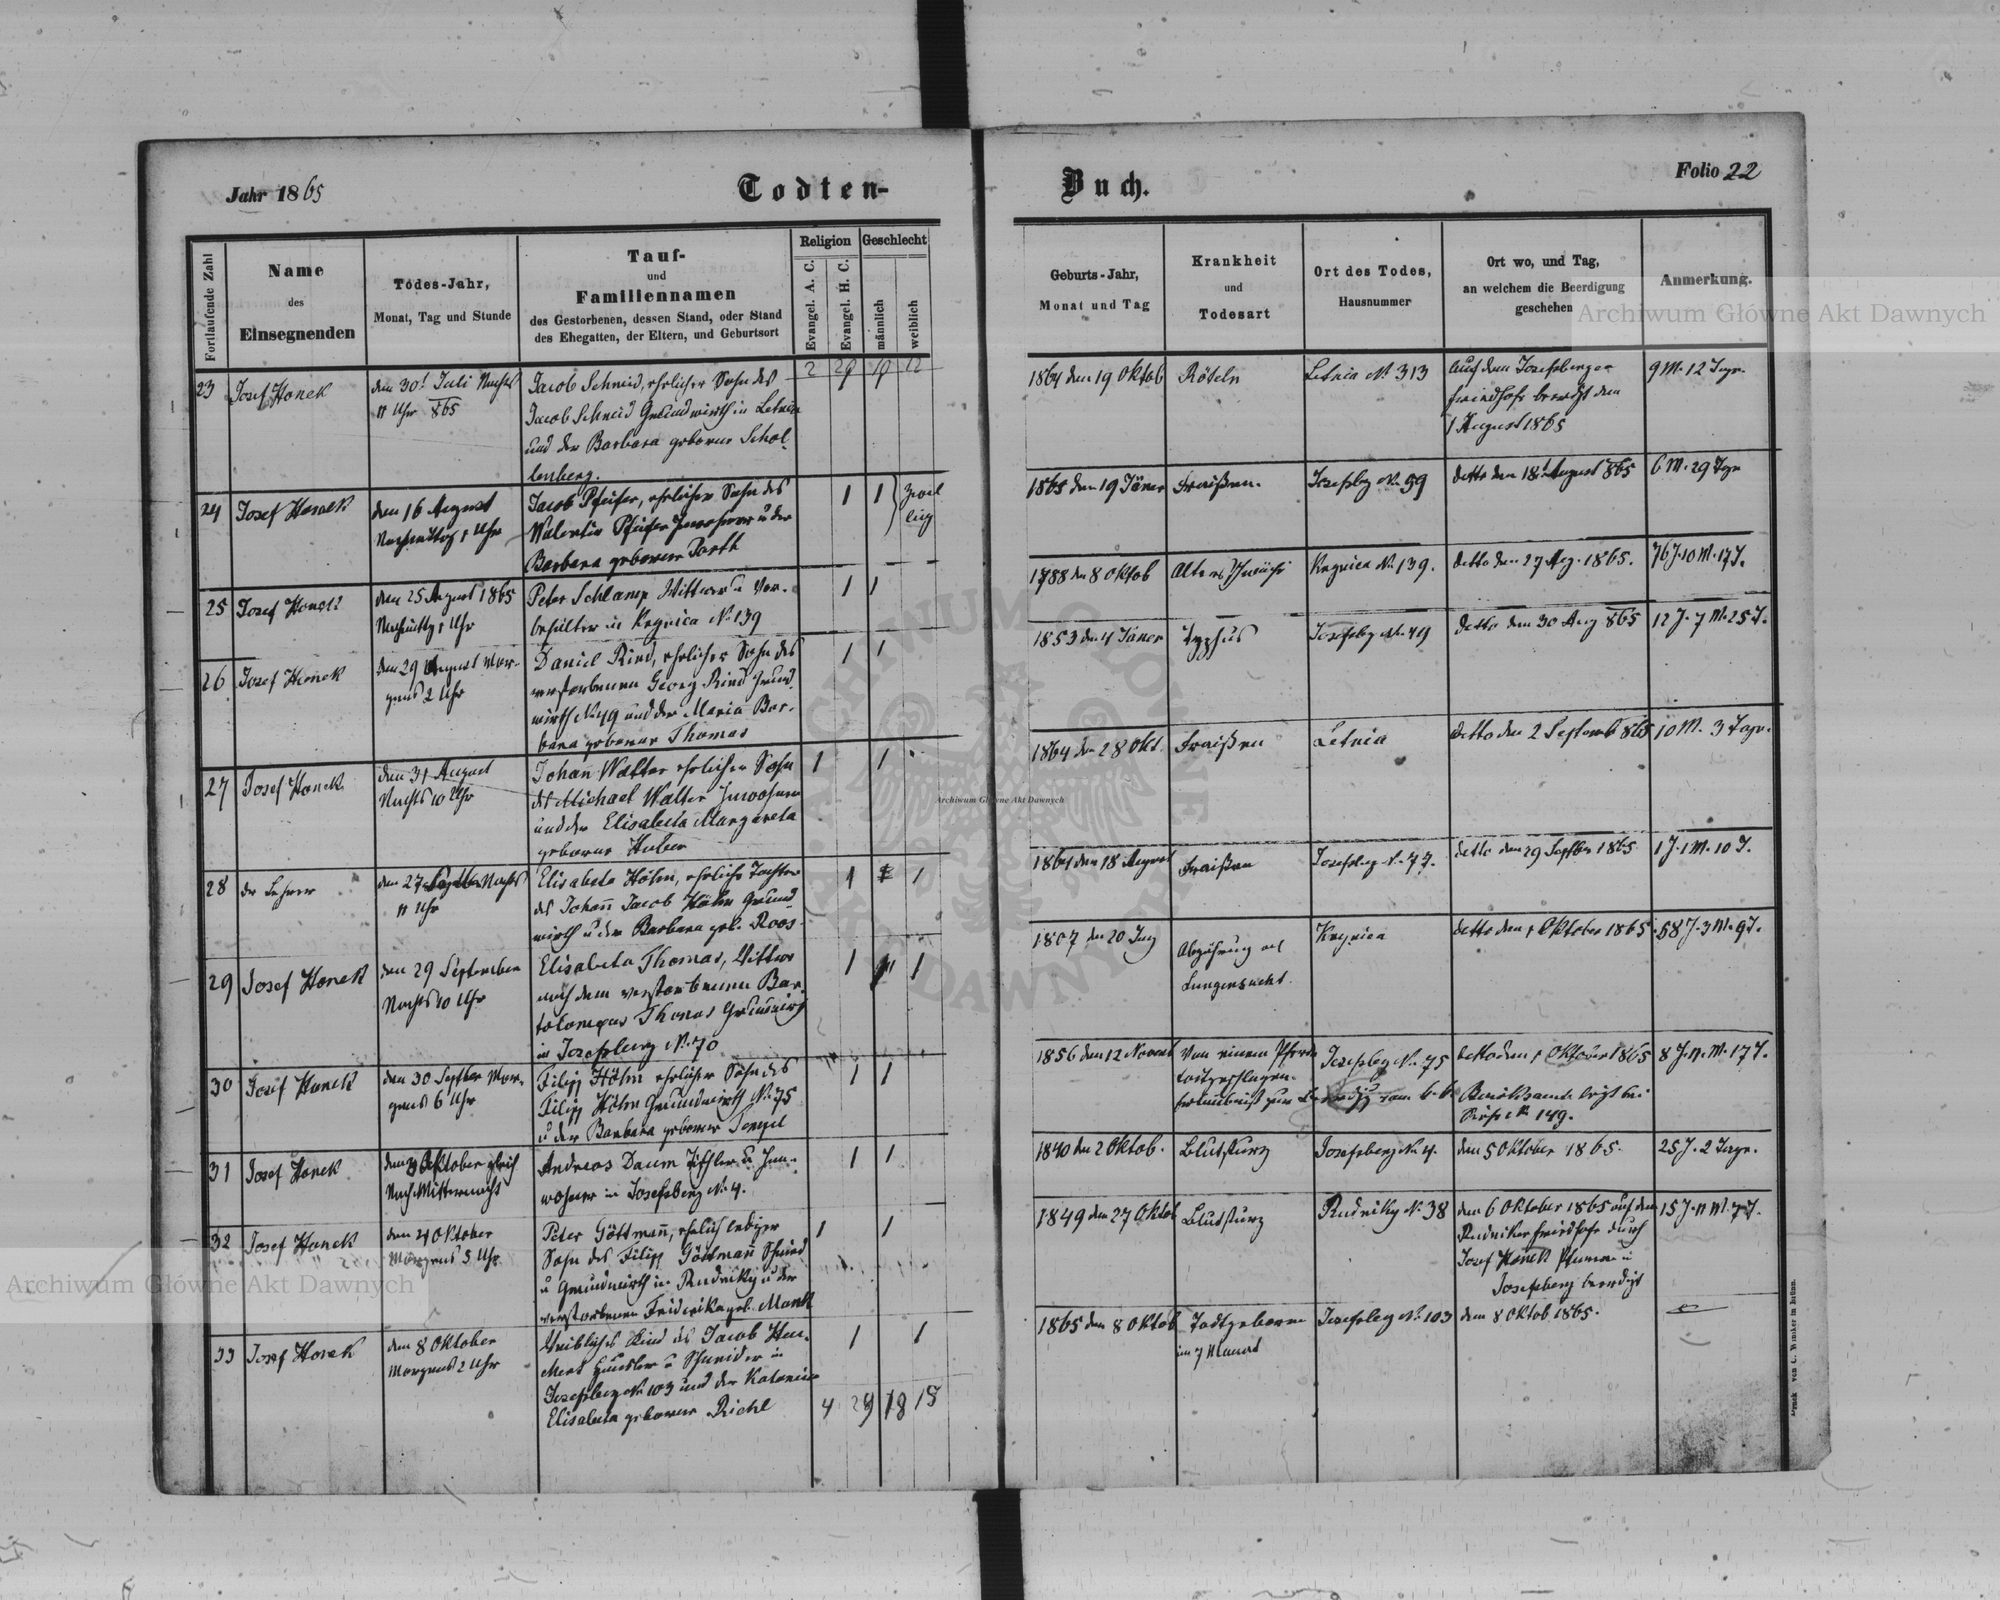 Jahr 1865
Todten-
Buch.
Folio 22
Fortlaufende Zahl
Name
des
Einsegnenden
Todes-Jahr,
Monat, Tag und Stunde
Tauf-
und
Familiennamen
des Gestorbenen, dessen Stand, oder Stand
des Ehegatten, der Eltern, und Geburtsort
Religion
Evangel. A. C.
Evangel. H. C.
Geschlecht
männlich
weiblich
Geburts-Jahr,
Monat und Tag
Krankheit
und
Todesart
Ort des Todes,
Hausnummer
Ort wo, und Tag,
an welchem die Beerdigung
geschehen
Anmerkung.
23
Josef Honek
den 30t Juli Nachts
11 Uhr 865
Jacob Schneid, ehelicher Sohn des
Jacob Schneid Grundwirth in Letnia
und der Barbara geborne Schol-
lenberg.
1864 den 19 Oktob
Röteln
Letnia No. 313
Auf dem Josefsberger
Friedhofe beerdigt den
1 August 1865
9 M. 12 Tage.
24
Josef Honek
den 16 August
Nachmittag 1 Uhr
Jacob Pfeifer, ehelicher Sohn des
Walentin Pfeifer Inwohner u der
Barbara geborene Porth
1 1
Zwil
ling
1865 den 19 Jäner
Fraißen.
Josefsbg No. 99
detto den 18t August 865
6 M. 29 Tage
25
Josef Honek
den 25 August 1865
Nachmittg 1 Uhr
Peter Schlamp Wittwer u Vor-
behälter in Krynica No. 139
1 1
1788 den 8 Oktob
Altersschwäche
Krynica No. 139.
detto den 27 Aug. 1865.
76 J. 10 M. 17 T.
26
Josef Honek
den 29 August Mor-
gens 2 Uhr
Daniel Rind, ehelicher Sohn des
verstorbenen Georg Rind Grund-
wirth No. 49 und der Maria Bar-
bara geborne Thomas
1 1
1853 den 4 Jäner
Typhus
Josefsbg No. 49
detto den 30 Aug 865
12 J. 7 M. 25 T.
27
Josef Honek
den 31 August
Nachts 10 Uhr
Johan̅ Walter ehelicher Sohn
des Michael Walter Inwohner
und der Elisabeta Margareta
geborne Huber
1 1
1864 den 28 Okt.
Fraißen
Letnia
detto den 2 Septemb 865
10 M. 3 Tage.
28
der Lehrer
den 27 Septber Nachts
11 Uhr
Elisabeta Höhn, eheliche Tochter
des Johan̅ Jacob Höhn Grund-
wirth u der Barbara geb. Roos.
1 1
1864 den 18 August
Fraißen
Josefsbg No. 77.
detto den 29 Septber 1865
1 J. 1 M. 10 T.
29
Josef Honek
den 29 September
Nachts 10 Uhr
Elisabeta Thomas, Wittwe
nach dem verstorbenen Bar-
tolomeus Thomas Grundwirth
in Josefsberg No. 70
1 1
1807 den 20 Juny
Abzehrung
Lungensucht.
Krynica
detto den 1 Oktober 1865.
58 J. 3 M. 9 T.
30
Josef Honek
den 30 Septber Mor-
gens 6 Uhr
Filipp Höhn ehelicher Sohn des
Filipp Höhn Grundwirth No. 75
u der Barbara geborne Tempel
1 1
1856 den 12 Novemb
Von einem Pferde
todtgeschlagen.
Josefsbg No. 75
detto den 1 Oktober 1865
8 J. 11. M. 17 T.
No. 149.
31
Josef Honek
den 3 Oktober gleich
Nach Mitternacht
Andreas Daum Tischler u Inn-
wohner in Josefsberg No. 4.
1 1
1840 den 2 Oktob.
Blutsturz
Josefsberg No. 4.
den 5 Oktober 1865.
25 J. 2 Tage.
32
Josef Honek
den 4 Oktober
Morgens 5 Uhr
Peter Göttman̅, ehelich lediger
Sohn des Filipp Göttman̅ Schmied
u Grundwirth in Rudniky u der
verstorbenen Friderika geb. Mank
1 1
1849 den 27 Oktob
Blutsturz
Rudniky No. 38
den 6 Oktober 1865 auf dem
Rudniker Friedhofe durch
Josef Honek Pfarrer in
Josefsberg beerdigt
15 J. 11 M. 7 T.
33
Josef Honek
den 8 Oktober
Morgens 2 Uhr
Weibliches Kind des Jacob
Häusler u Schneider in
Josefsberg No. 103 und der Katarina
Elisabeta geborene Richl
1 1
1865 den 8 Oktob
Todtgeboren
im 7 Monat
Josefsbg No. 103
den 8 Oktob 1865.
4 29 18 15
Archiwum Główne Akt Dawnych
Archiwum Główne Akt Dawnych
Archiwum Główne Akt Dawnych